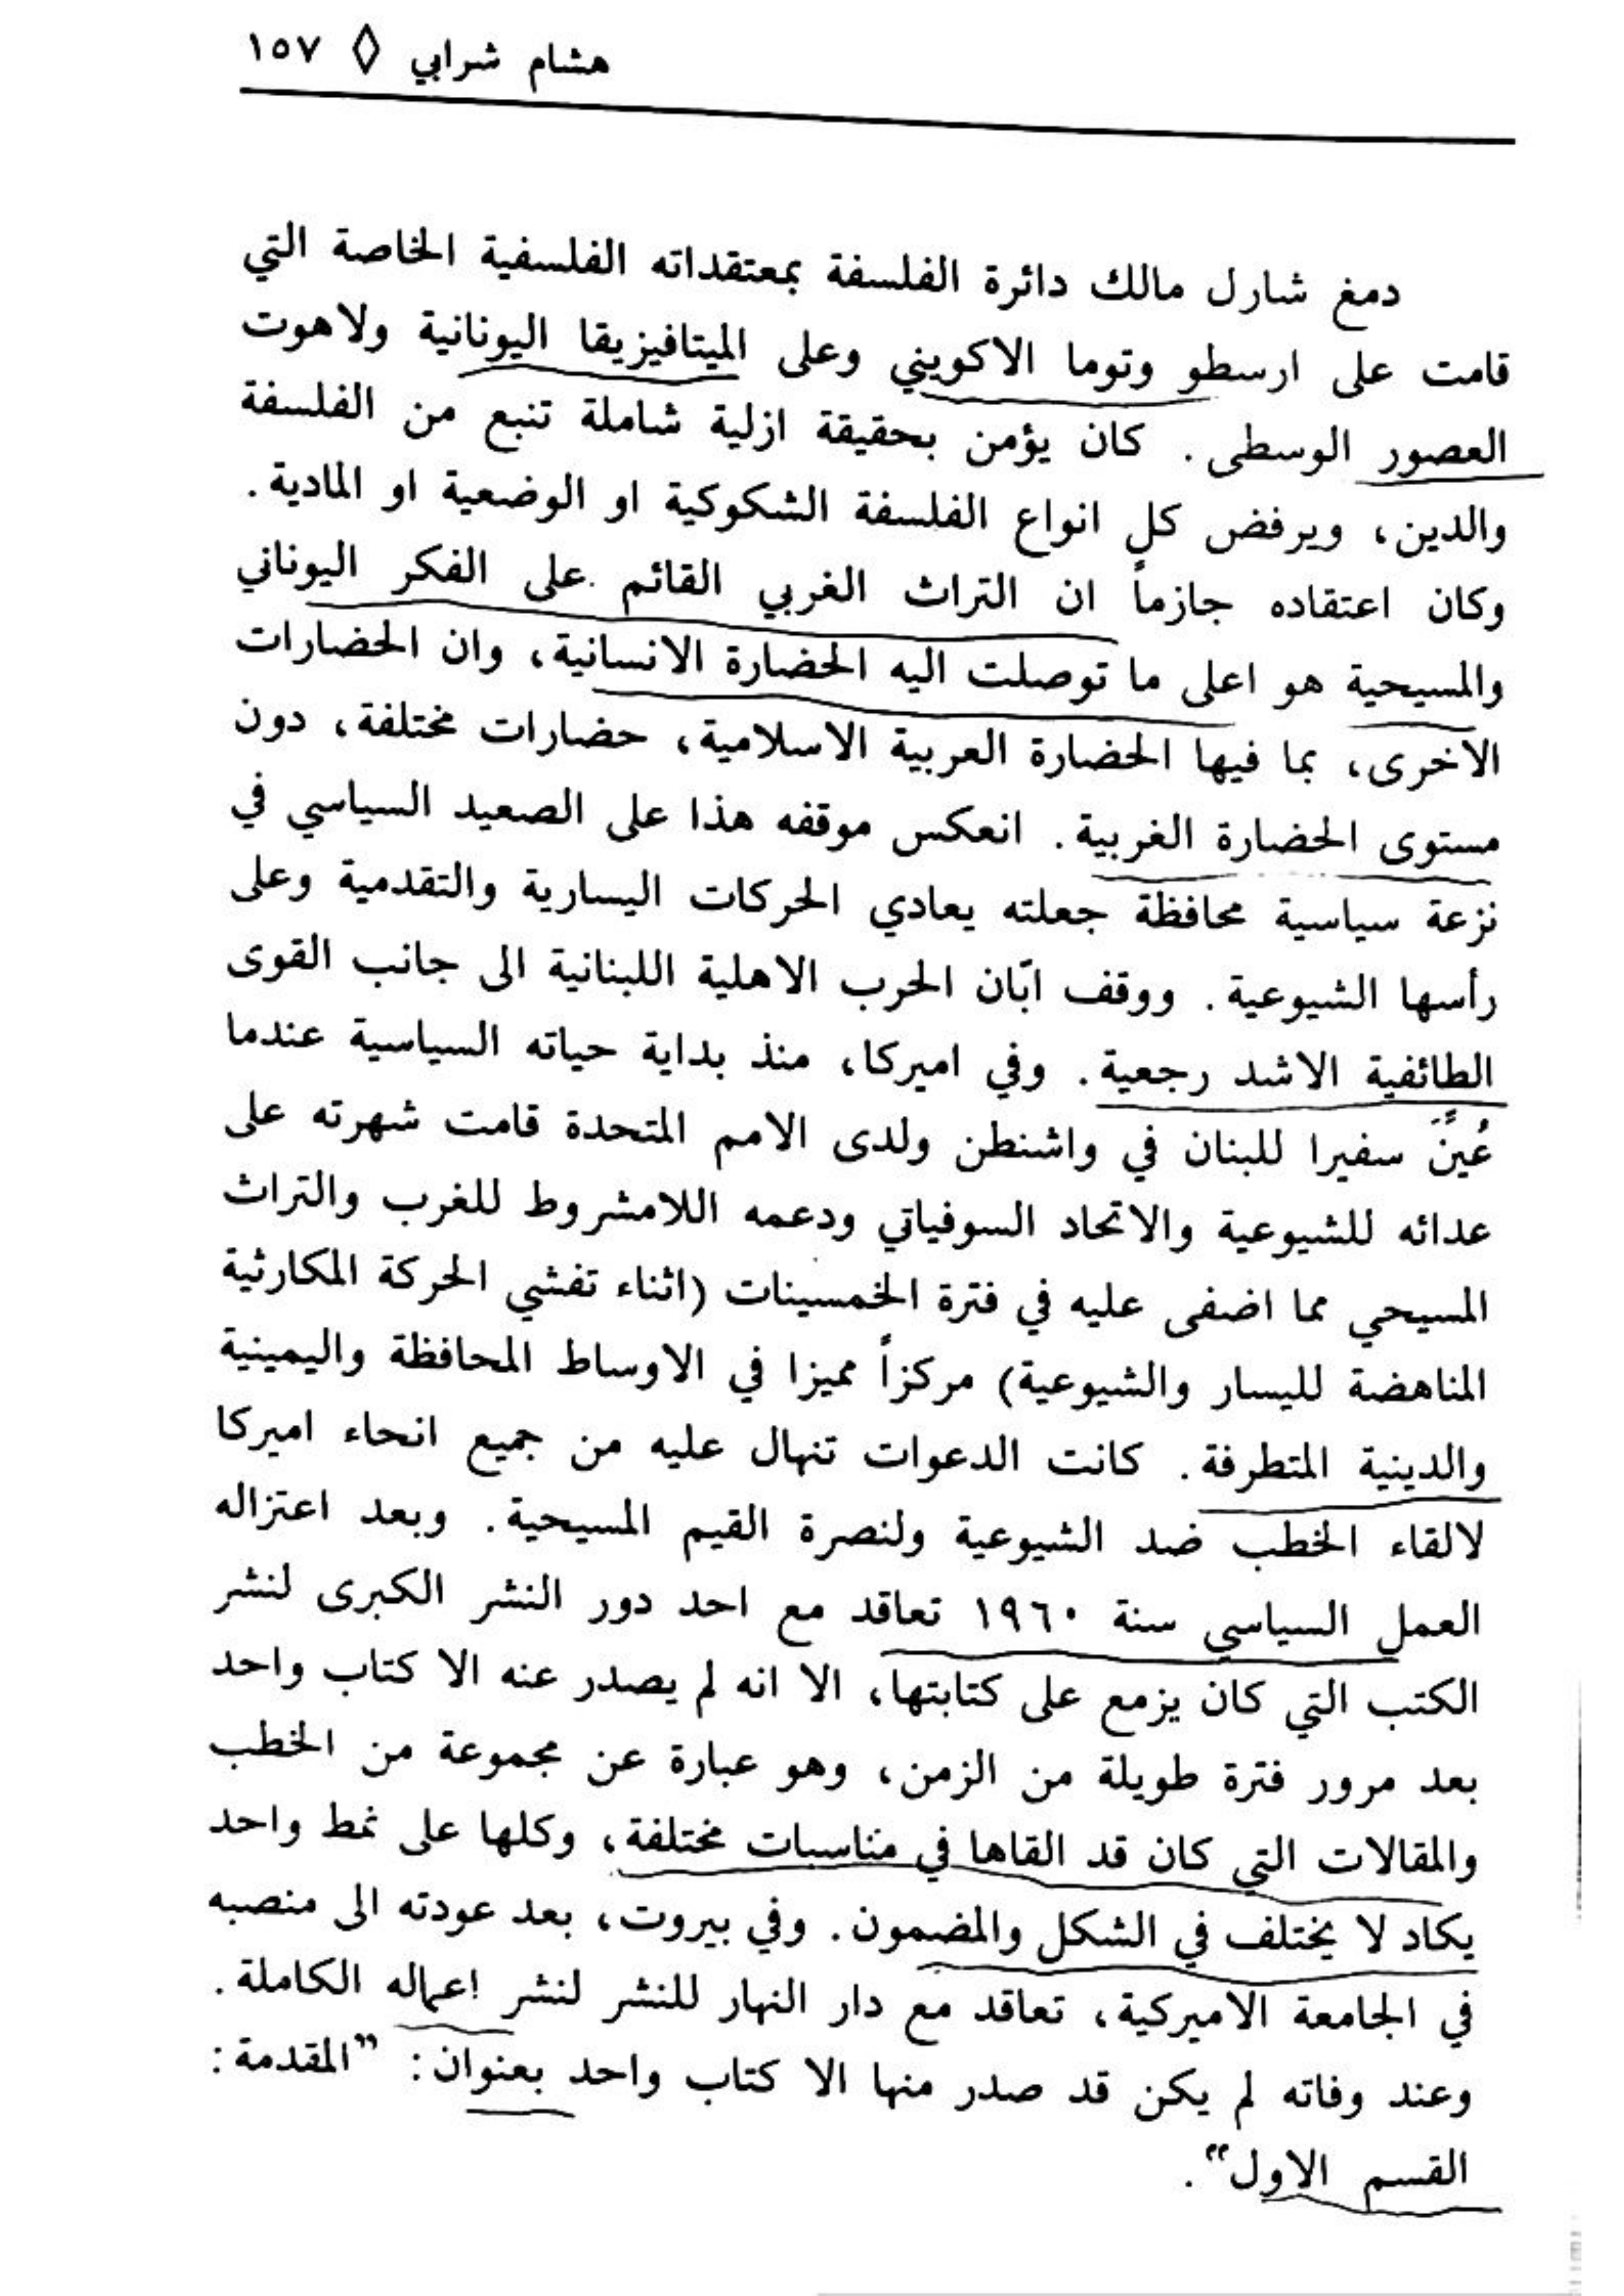 هشام شرابي ◊ ١٥٧
دمغ شارل مالك دائرة الفلسفة بمعتقداته الفلسفية الخاصة التي
قامت على ارسطو وتوما الاكويني وعلى الميتافيزيقا اليونانية ولاهوت
العصور الوسطى. كان يؤمن بحقيقة ازلية شاملة تنبع من الفلسفة
والدين، ويرفض كل انواع الفلسفة الشكوكية او الوضعية او المادية.
وكان اعتقاده جازماً ان التراث الغربي القائم على الفكر اليوناني
والمسيحية هو اعلى ما توصلت اليه الحضارة الانسانية، وان الحضارات
الاخرى، بما فيها الحضارة العربية الاسلامية، حضارات مختلفة، دون
مستوى الحضارة الغربية. انعكس موقفه هذا على الصعيد السياسي في
نزعة سياسية محافظة جعلته يعادي الحركات اليسارية والتقدمية وعلى
رأسها الشيوعية. ووقف ابّان الحرب الاهلية اللبنانية الى جانب القوى
الطائفية الاشد رجعية. وفي اميركا، منذ بداية حياته السياسية عندما
عُيِّنَ سفيرا للبنان في واشنطن ولدى الامم المتحدة قامت شهرته على
عدائه للشيوعية والاتحاد السوفياتي ودعمه اللامشروط للغرب والتراث
المسيحي مما اضفى عليه في فترة الخمسينات (اثناء تفشي الحركة المكارثية
المناهضة لليسار والشيوعية) مركزاً مميزا في الاوساط المحافظة واليمينية
والدينية المتطرفة. كانت الدعوات تنهال عليه من جميع انحاء اميركا
لالقاء الخطب ضد الشيوعية ولنصرة القيم المسيحية. وبعد اعتزاله
العمل السياسي سنة ١٩٦٠ تعاقد مع احد دور النشر الكبرى لنشر
الكتب التي كان يزمع على كتابتها، الا انه لم يصدر عنه الا كتاب واحد
بعد مرور فترة طويلة من الزمن، وهو عبارة عن مجموعة من الخطب
والمقالات التي كان قد القاها في مناسبات مختلفة، وكلها على نمط واحد
يكاد لا يختلف في الشكل والمضمون. وفي بيروت، بعد عودته الى منصبه
في الجامعة الاميركية، تعاقد مع دار النهار للنشر لنشر اعماله الكاملة.
وعند وفاته لم يكن قد صدر منها الا كتاب واحد بعنوان: ”المقدمة:
القسم الاول“.